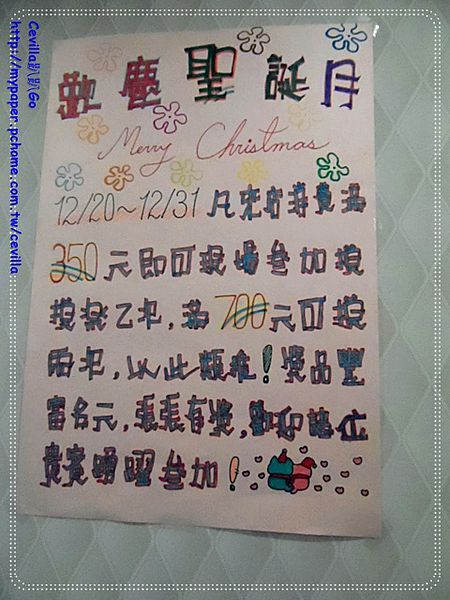 歡慶聖誕月
Merry Christmas
12/20～12/31 凡來店消費滿
350元即可現場參加摸
摸樂乙次，滿700元可摸
兩次，以此類推！獎品豐
富名元，張張有獎，歡迎諸位
貴賓踴躍參加！
Cevilla趴趴Go
http://mypaper.pchome.com.tw/cevilla